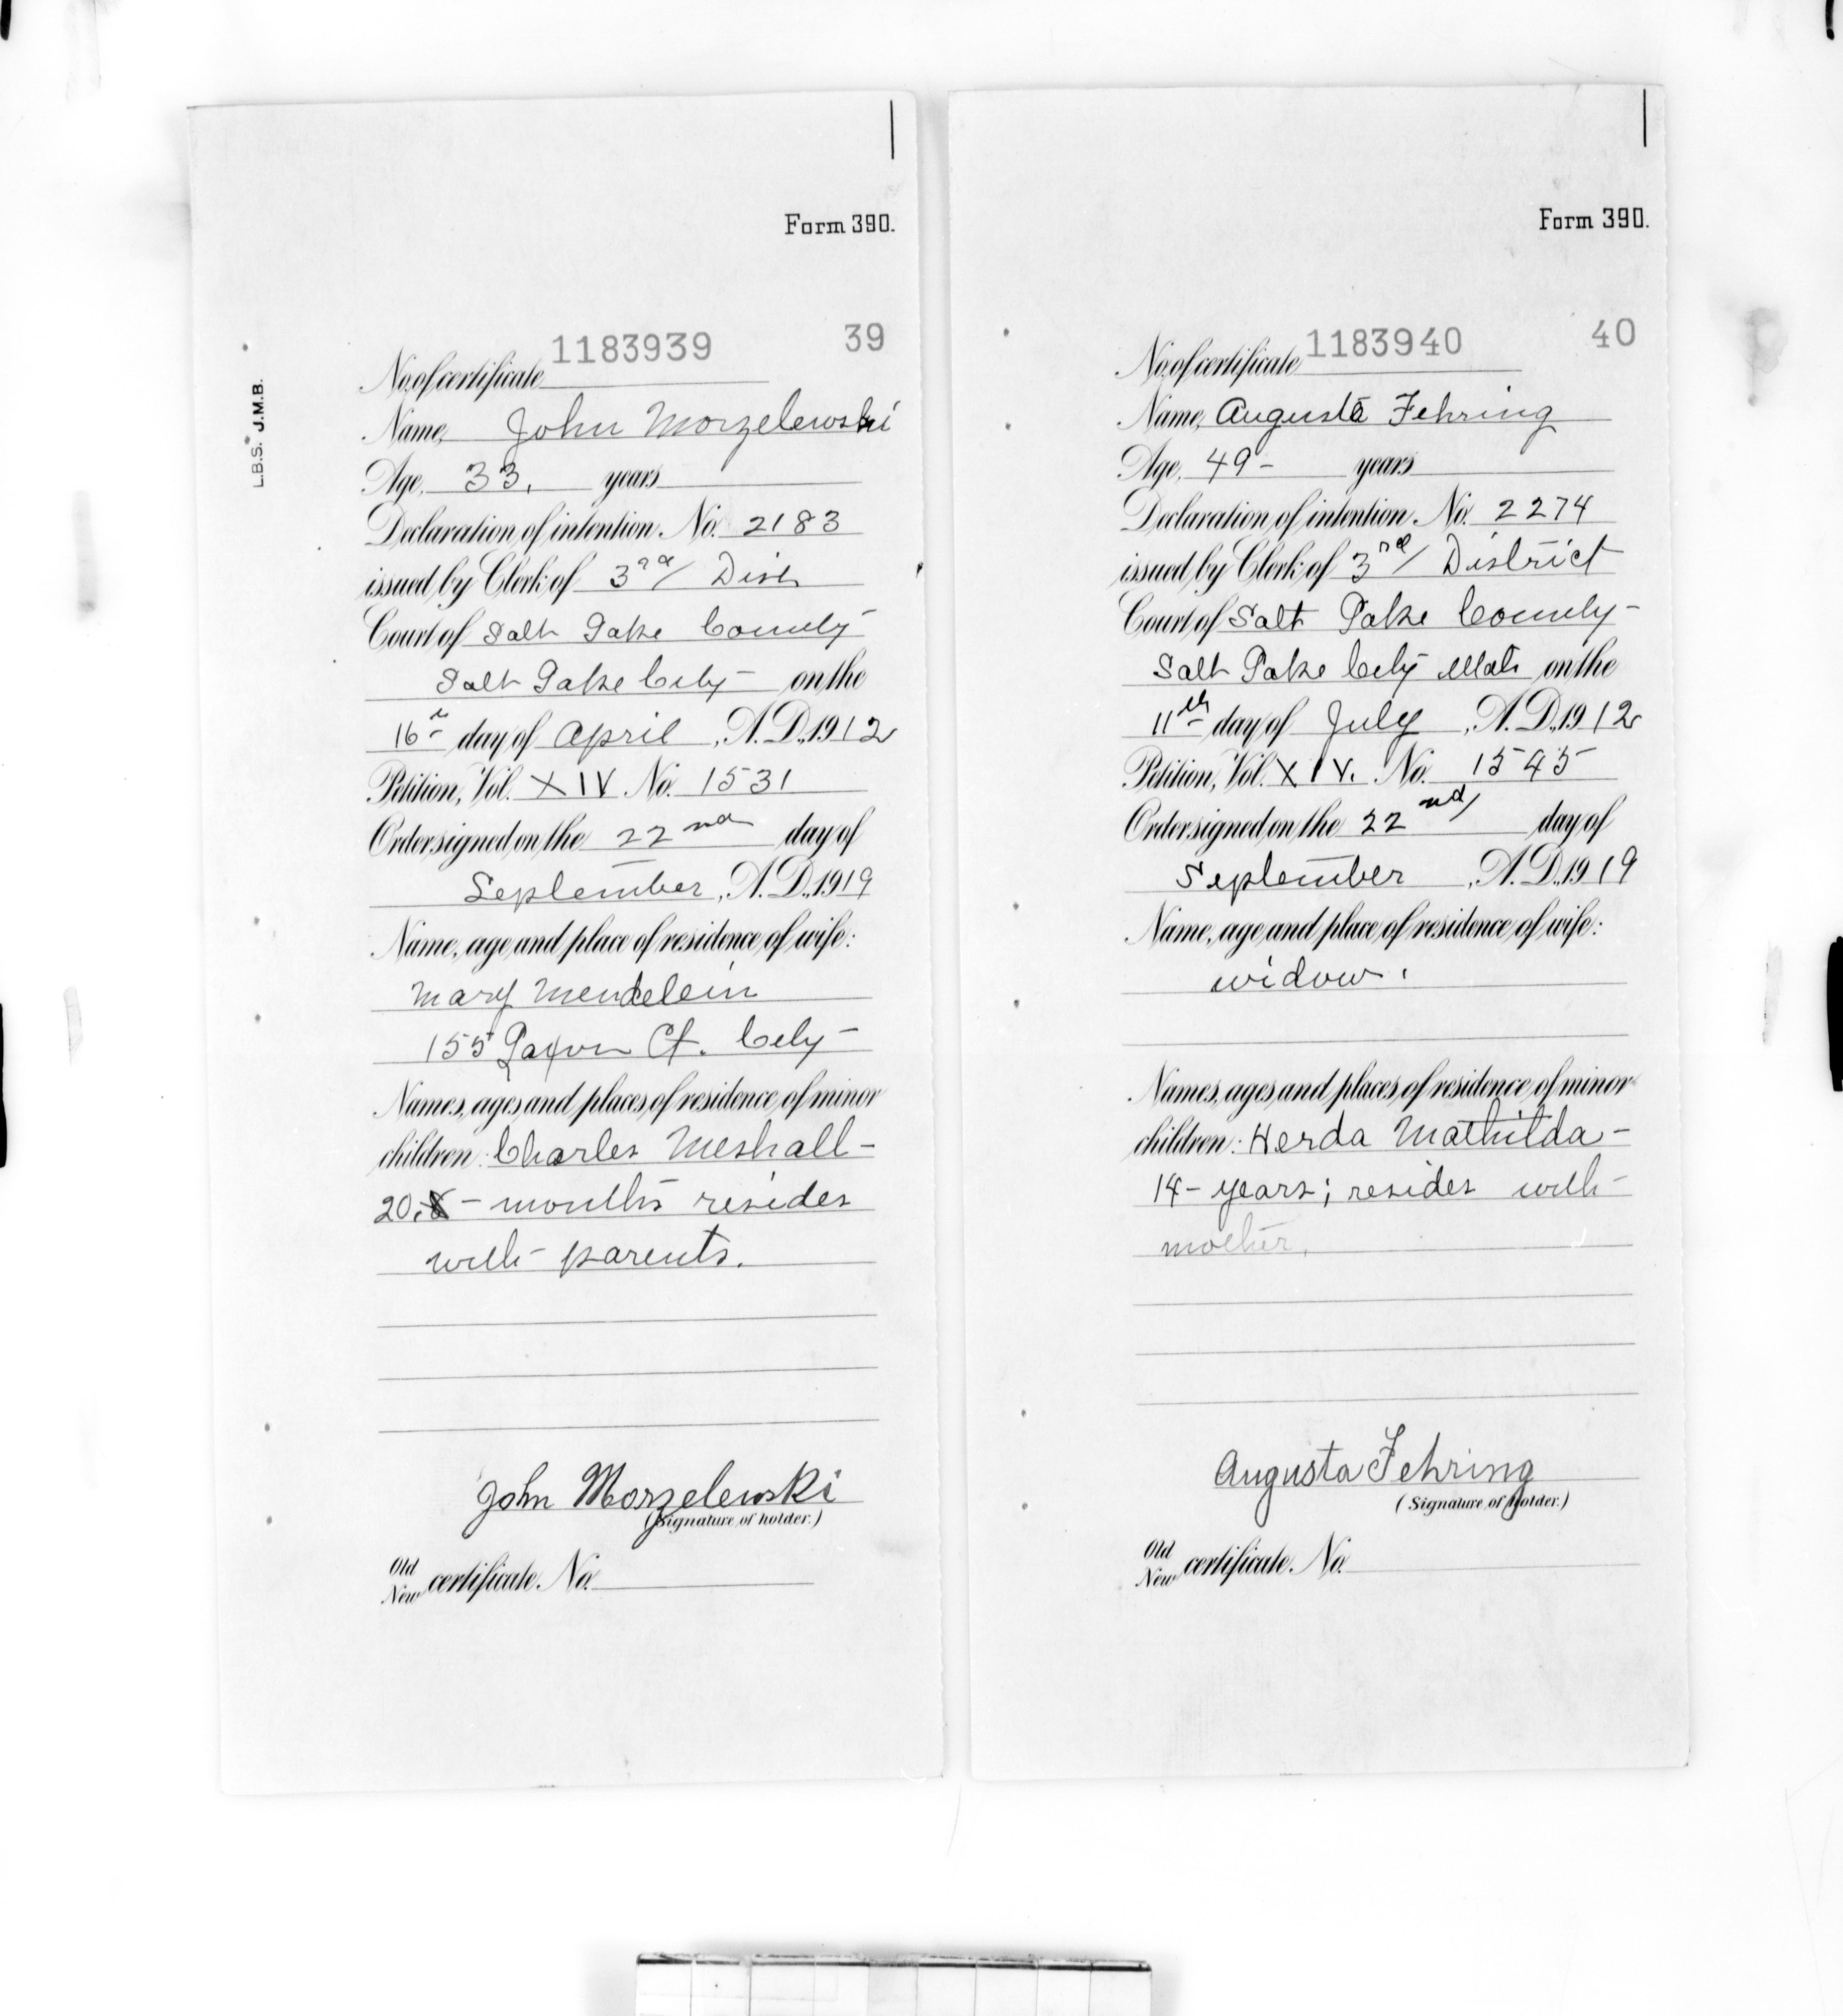 L.B.S. J.M.B.
Form 390.
1183939 39
No. of certificate
Name, John Morzelewski
Age, 33, years
Declaration of intention No. 2183
issued by Clerk of 3rd Dist
Court of Salt Lake County
Salt Lake City on the
16 day of April, A.D. 1912
Petition, Vol. XIV No. 1531
Order signed on the 22nd day of
September, A.D. 1919
Name, age and place of residence of wife:
Mary Mendelein
155 Ct. City
Names, ages and places of residence of minor
children: Charles Meshall -
20 - months resides
with parents.
John Morzelewski
(Signature of holder.)
Old
New certificate No.
Form 390.
1183940 40
No. of certificate
Name, Augusta Fehring
Age, 49 - years
Declaration of intention No. 2274
issued by Clerk of 3rd District
Court of Salt Lake County -
Salt Lake City Utah on the
11th day of July, A.D. 1912
Petition, Vol. XIV. No. 1545
Order signed on the 22nd day of
September, A.D. 1919
Name, age and place of residence of wife:
widow.
Names, ages and places of residence of minor
children: Herda Mathilda -
14 - years; resides with
mother.
Augusta Fehring
(Signature of holder.)
Old
New certificate No.